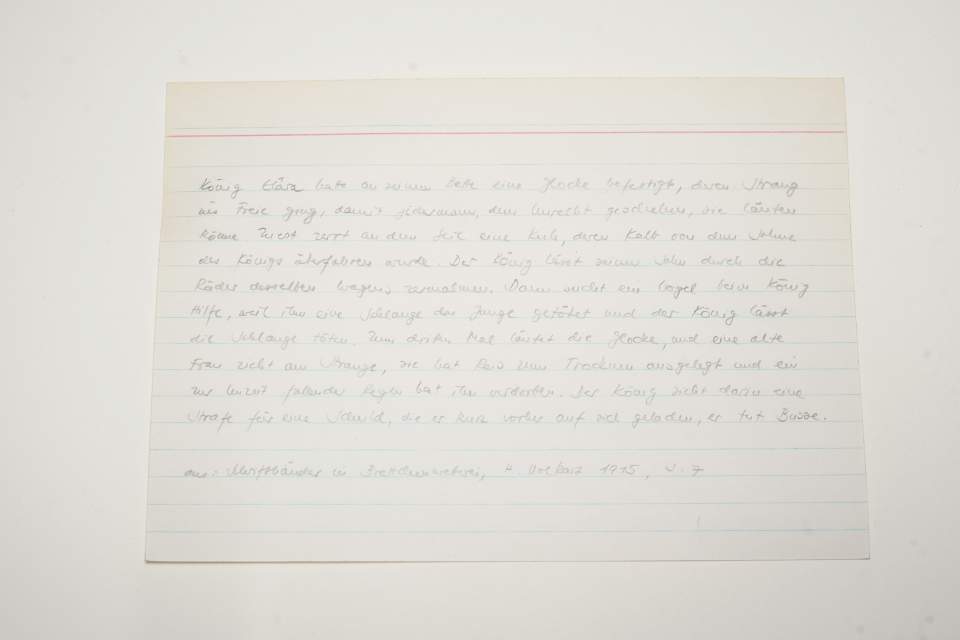 König Elāra hatte an seinem Bette eine Glocke befestigt, deren Strang
ins Freie ging, damit jedermann, dem Unrecht geschehen, sie läuten
könne. Zuerst zerrt an dem Seil eine Kuh, deren Kalb von dem Sohne
des Königs überfahren wurde. Der König lässt seinen Sohn durch die
Räder desselben Wagens zermalmen. Dann sucht ein Vogel beim König
Hilfe, weil ihm eine Schlange das Junge getötet und der König lässt
die Schlange töten. Zum dritten Mal läutet die Glocke, und eine alte
Frau zieht am Strange, sie hat Reis zum Trocknen ausgelegt und ein
zur Unzeit fallender Regen hat ihn verdorben. Der König sieht darin eine
Strafe für eine Schuld, die er kurz vorher auf sich geladen, er tut Busse.
aus: Schriftbänder in Brettchenweberei, 1915, S. 7